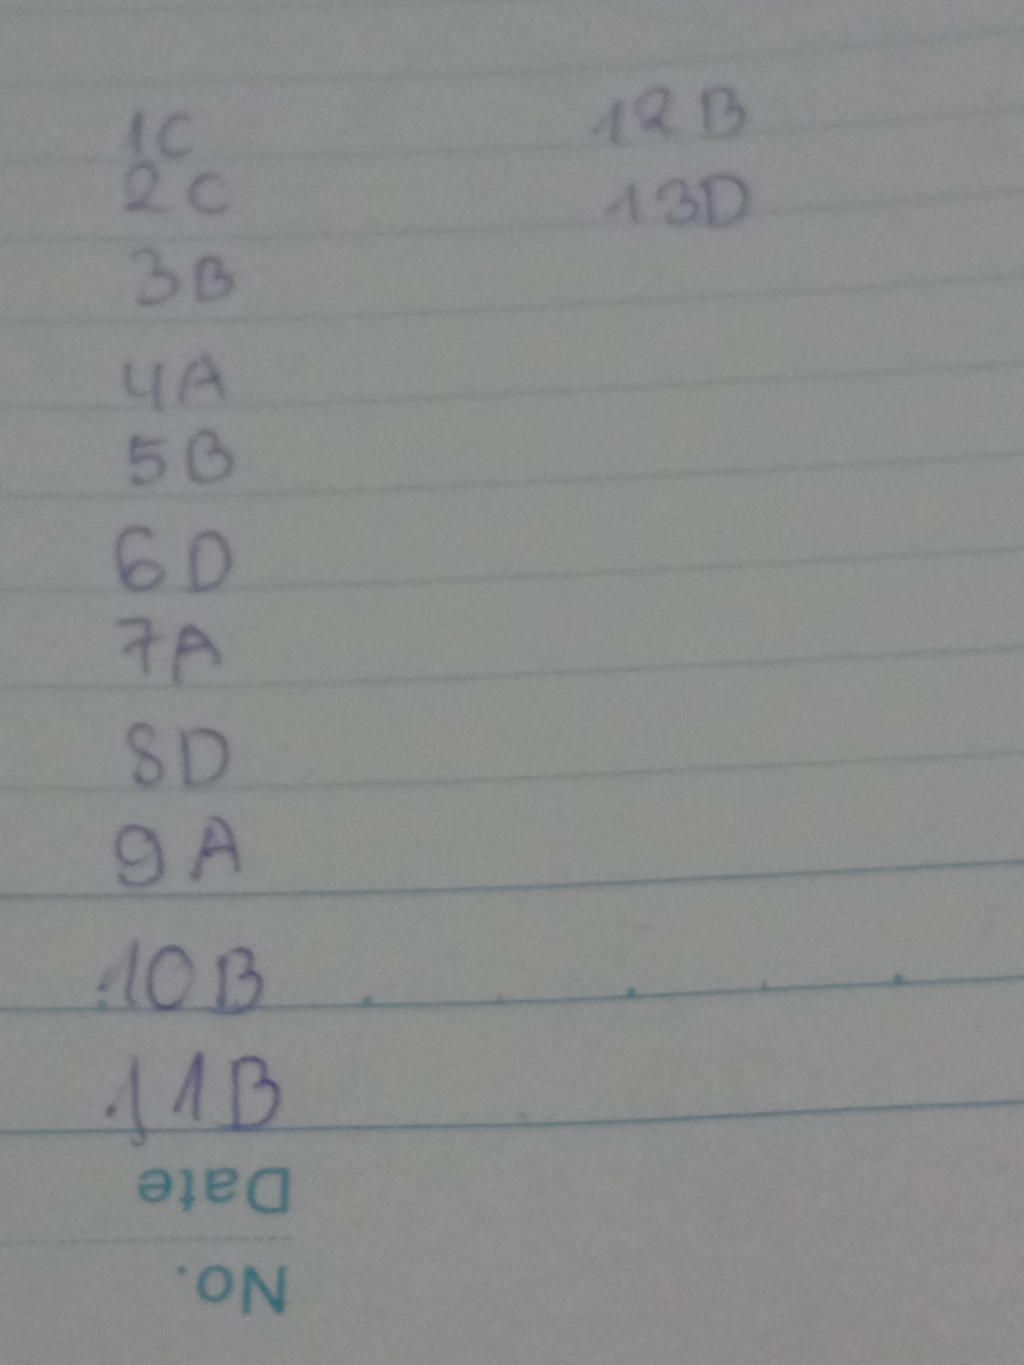 1C
2C
3B
4A
5B
6D
7A
8D
9A
10B
11B
12B
13D
Date
No.